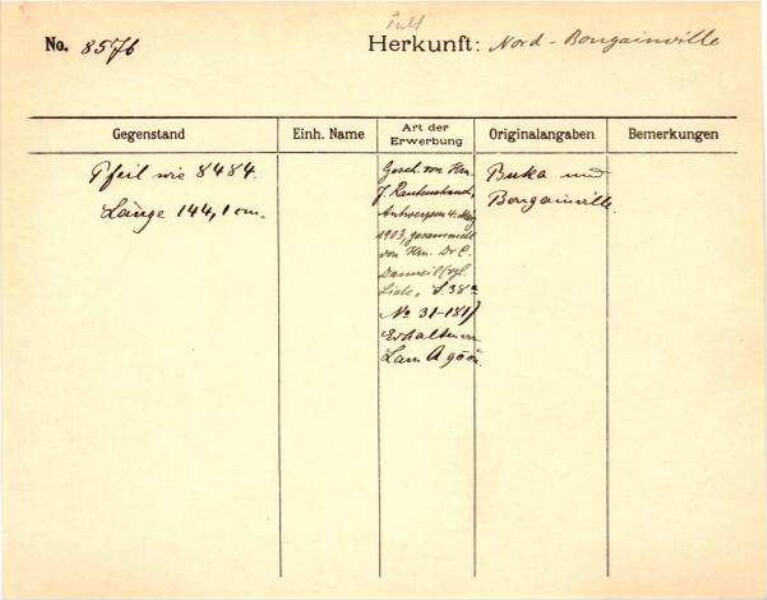 No. 8576
Herkunft: Nord-Bougainville
Gegenstand
Einh. Name
Art der
Erwerbung
Originalangaben
Bemerkungen
Pfeil wie 8484.
Länge 144,1 cm.
Gesch. von Hrn.
J.
Antwerpen 4.
1903, gesammelt
von Hrn. Dr C.
Danneil (vgl.
Liste, S. 38a
No 31-181)
Erhalten
Buka und
Bougainville.